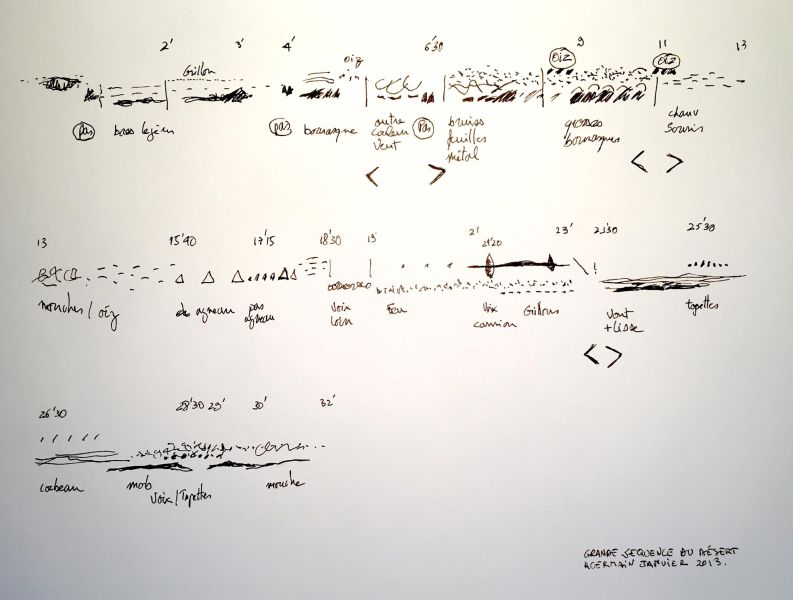 2' 3' 4' 6'30 9 11 13
Grillon oiz oiz oiz
pas bass pas bourrasque autre pas bruiss chauv
couleur feuilles bourrasques Souris
vent métal
13 15'40 17'15 18'30 19' 21' 21'20 23' 23'30 25'30
mouches / oiz agneau pas Voix Feu Voix Grillons Vent tapettes
agneau loin camion + lisse
26'30 28'30 29' 30' 32'
corbeau mob mouche
Voix / Tapettes
GRANDE SEQUENCE DU DÉSERT
JANVIER 2013.